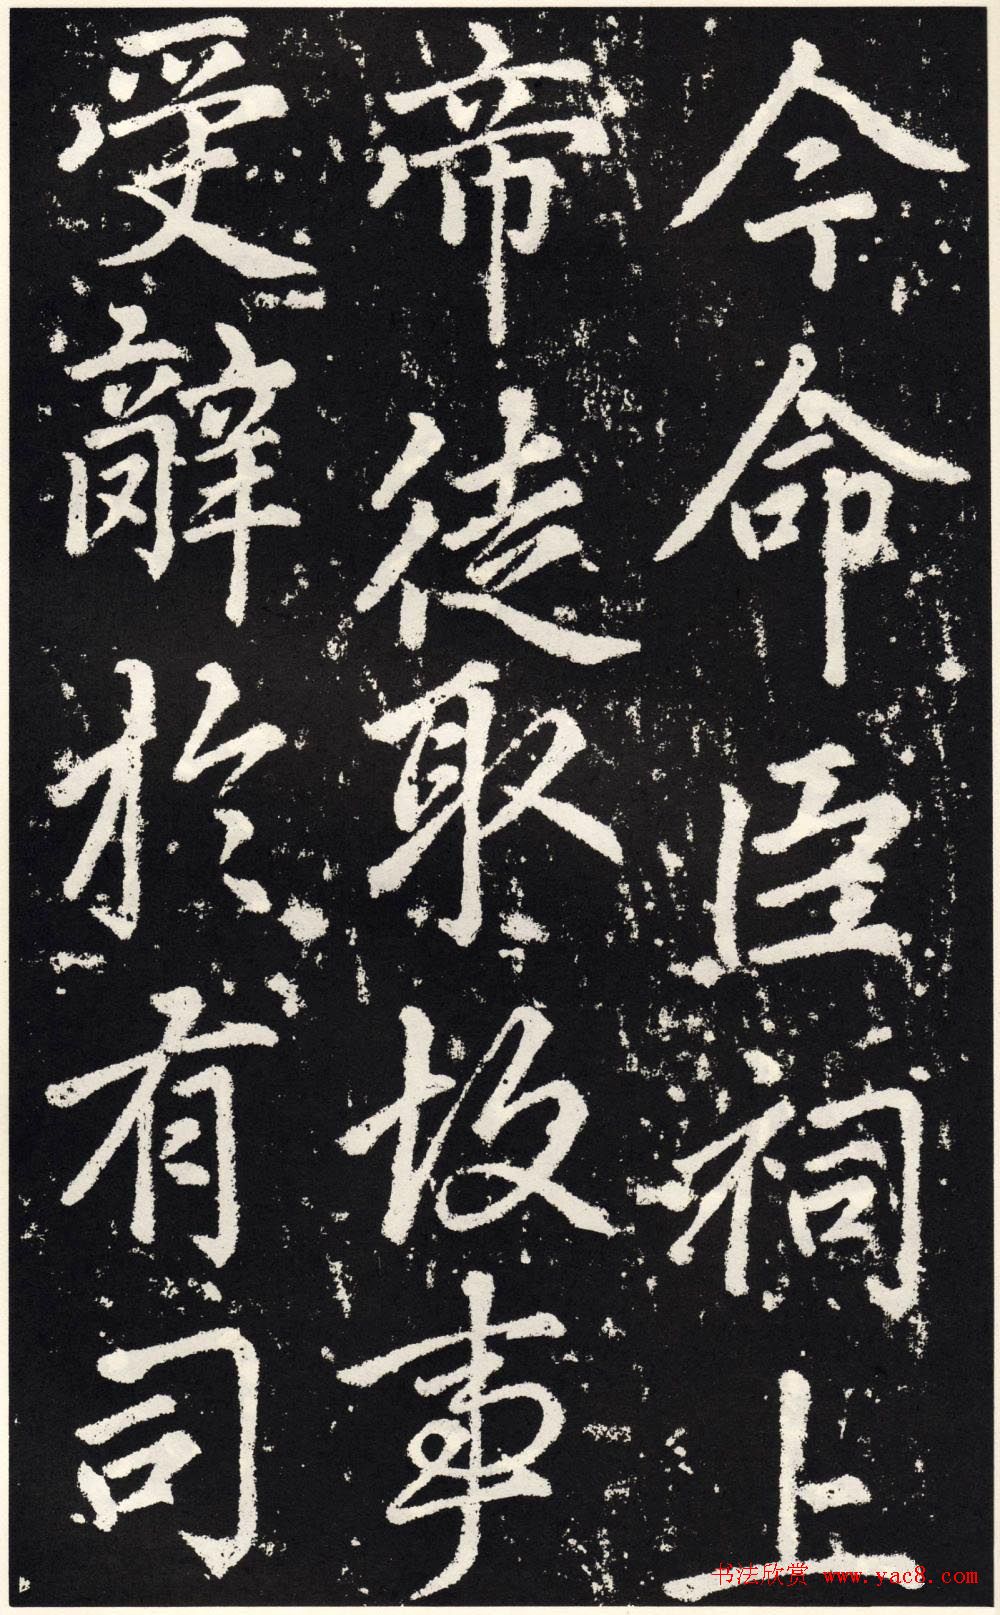 今命臣祠上
帝徒取故事
受辭於有司
书法欣赏 www.yac8.com